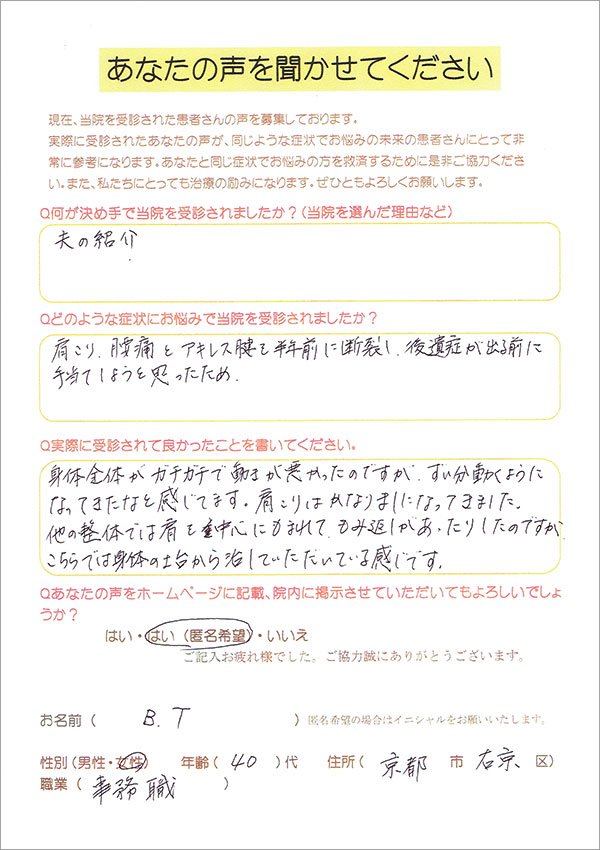 あなたの声を聞かせてください
現在、当院を受診された患者さんの声を募集しております。
実際に受診されたあなたの声が、同じような症状でお悩みの未来の患者さんにとって非
常に参考になります。あなたと同じ症状でお悩みの方を救済するために是非ご協力くださ
い。また、私たちにとっても治療の励みになります。ぜひともよろしくお願いします。
Q何が決め手で当院を受診されましたか？(当院を選んだ理由など)
夫の紹介
Qどのような症状にお悩みで当院を受診されましたか？
肩こり、腰痛とアキレス腱を半年前に断裂し、後遺症が出る前に
手当てしようと思ったため.
Q実際に受診されて良かったことを書いてください。
身体全体がガチガチで動きが悪かったのですが、ずい分動くように
なってきたなと感じてます。肩こりはかなりましになってきました.
他の整体では肩を重中心にもまれて、もみ返しがあったりしたのですが
こちらでは身体の土台から治していただいている感じです.
Qあなたの声をホームページに記載、院内に掲示させていただいてもよろしいでしょ
うか？
はい・はい（匿名希望）・いいえ
ご記入お疲れ様でした。ご協力誠にありがとうございます。
お名前（ B.T ）匿名希望の場合はイニシャルをお願いいたします。
性別（男性・女性） 年齢（ 40 ）代 住所（ 京都 市 右京 区）
職業（ 事務職 ）